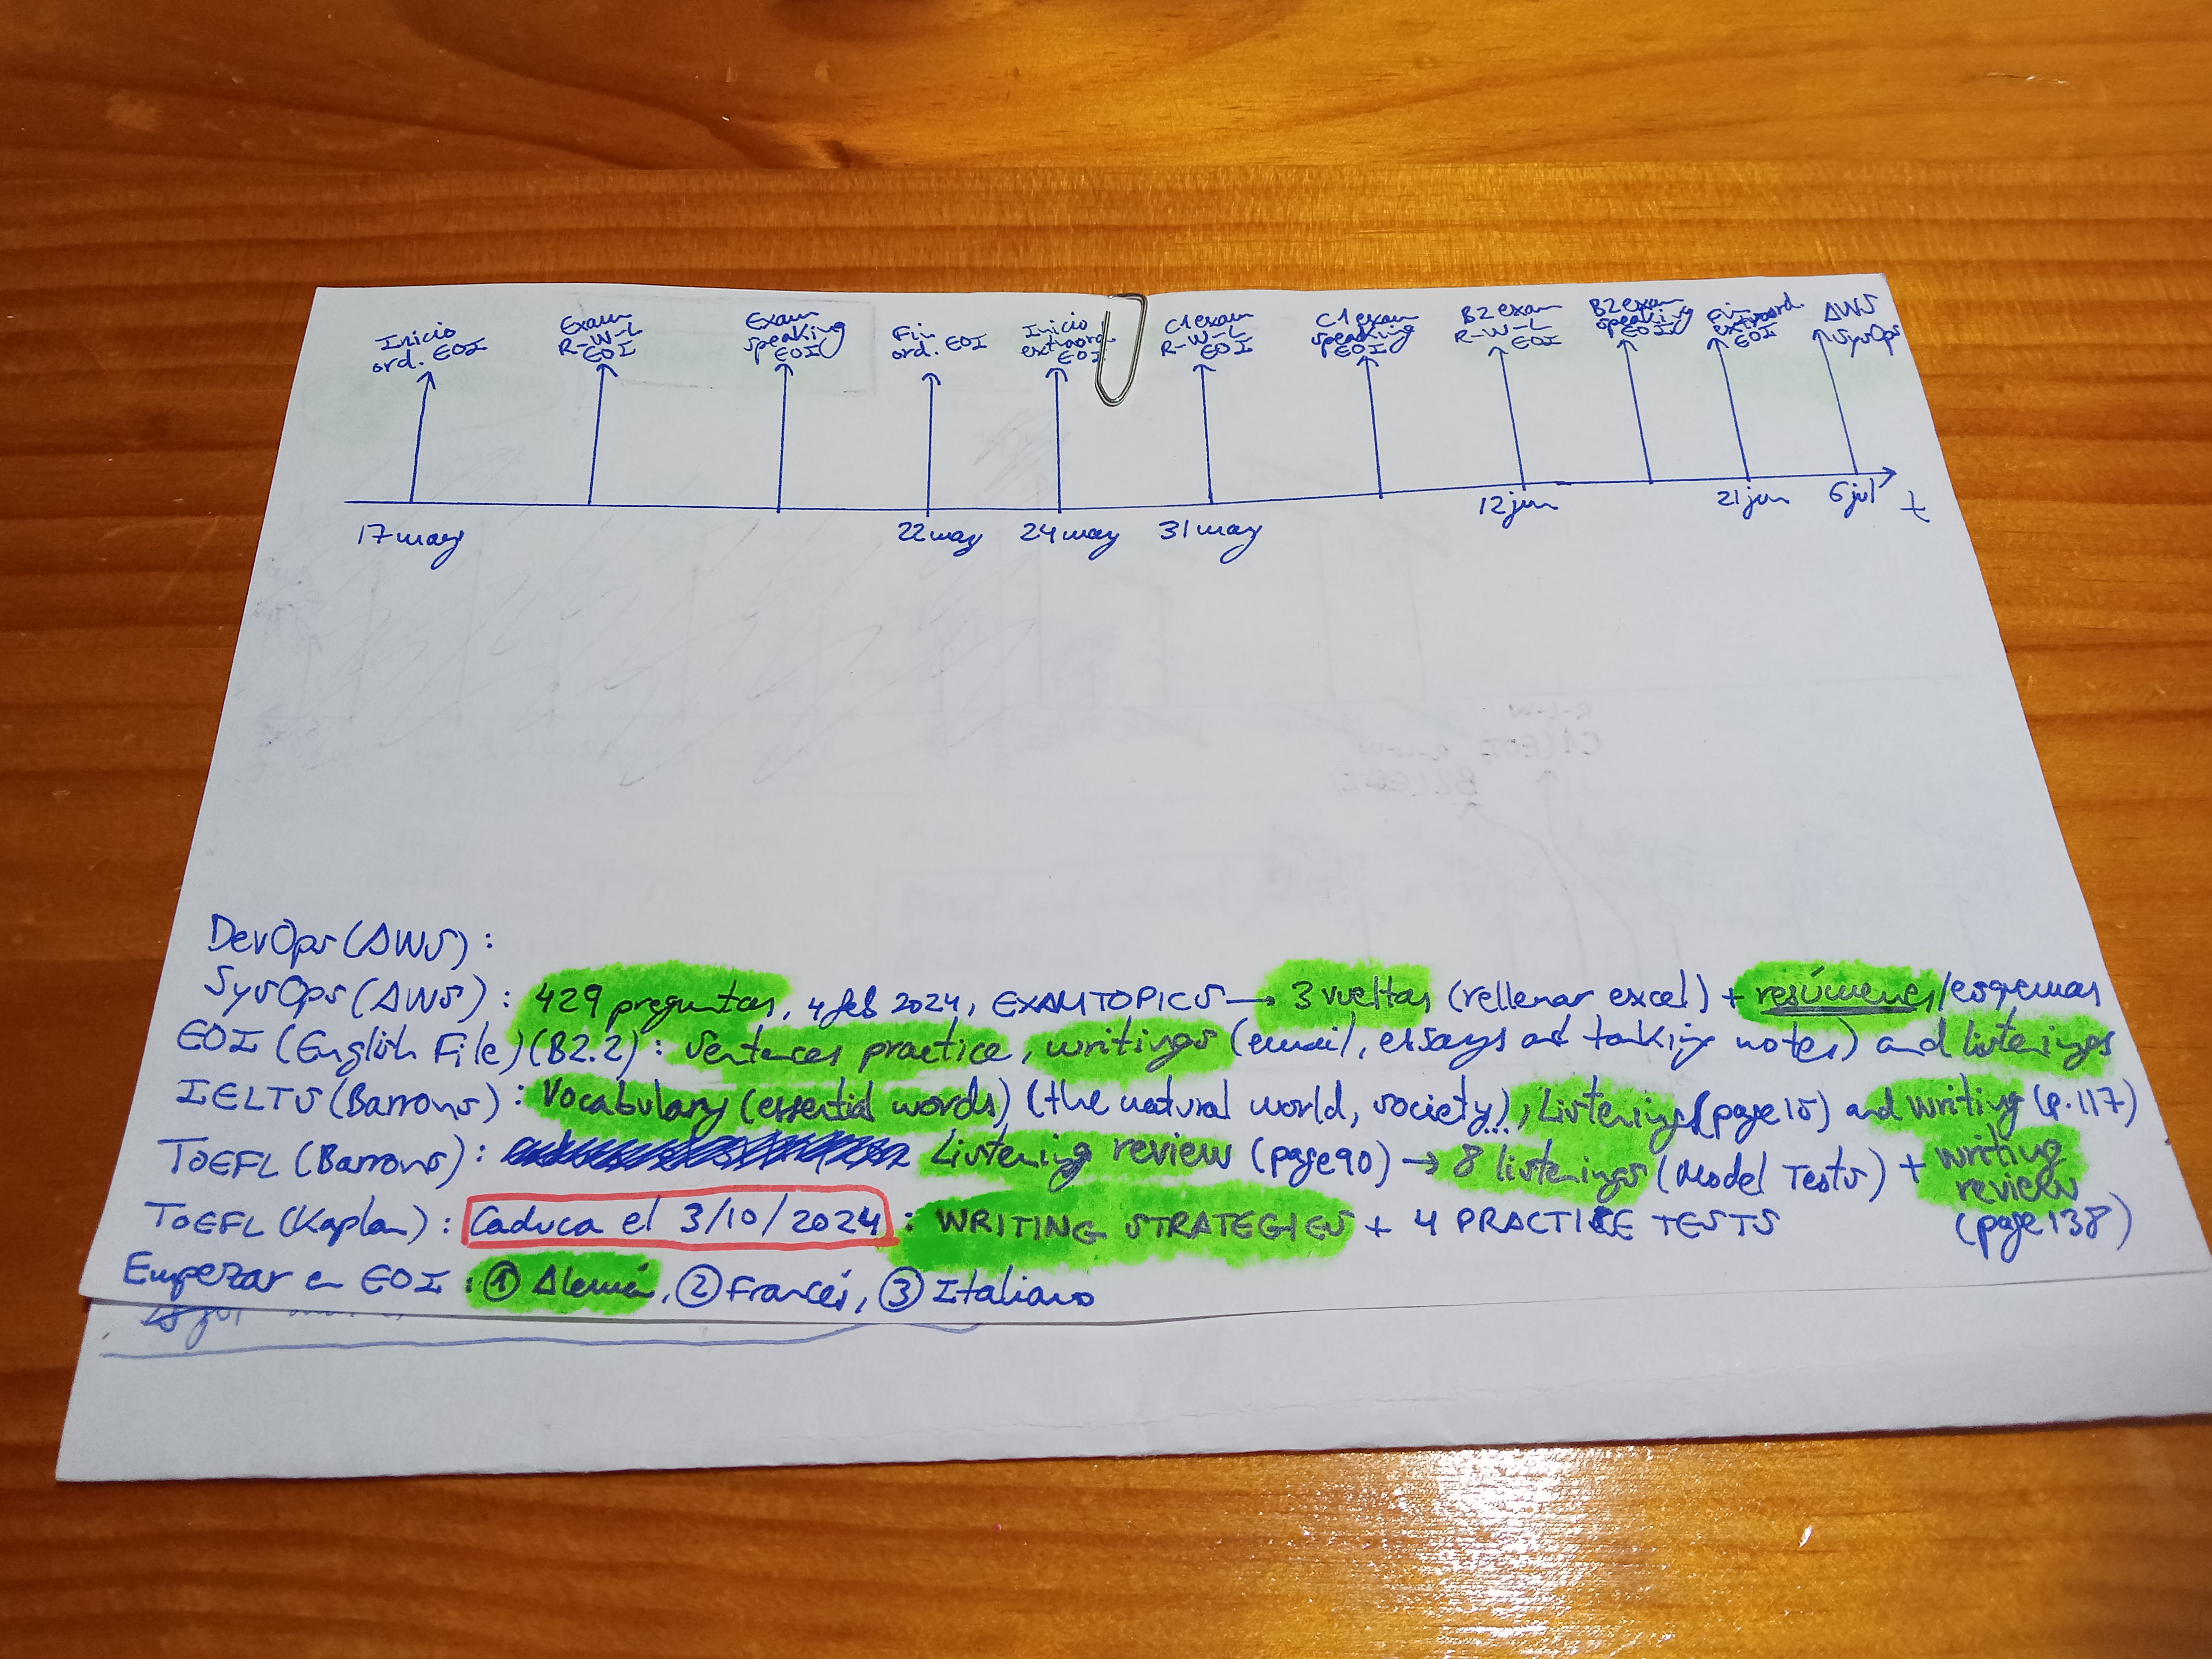 Inicio
ord. EOI
Exam
R-W-L
EOI
Exam
speaking
EOI
Fin
ord. EOI
Inicio
extraord.
EOI
C1 exam
R-W-L
EOI
C1 exam
speaking
EOI
B2 exam
R-W-L
EOI
B2 exam
speaking
EOI
Fin
extraord.
EOI
AWS
SysOps
17 may
22 may
24 may
31 may
12 jun
21 jun
6 jul
t
DevOps (AWS) :
SysOps (AWS) : 429 preguntas, 4 feb 2024, EXAMTOPICS → 3 vueltas (rellenar excel) + resúmenes/esquemas
EOI (English File) (B2.2) : Sentences practice, writings (email, essays and taking notes) and listenings
IELTS (Barrons) : Vocabulary (essential words) (the natural world, society...), Listening (page 15) and writing (p. 117)
TOEFL (Barrons) : Listening review (page 90) → 8 listenings (Model Tests) + writing
review
(page 138)
TOEFL (Kaplan) : Caduca el 3/10/2024 : WRITING STRATEGIES + 4 PRACTICE TESTS
Empezar en EOI : ① Alemán, ② Francés, ③ Italiano